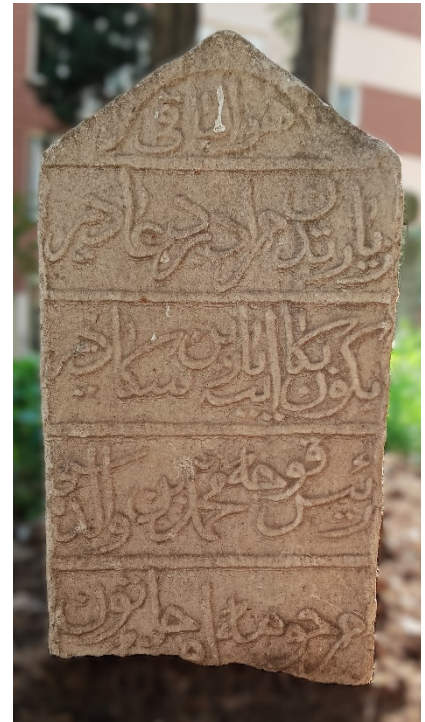 هو الباقی
زیارتدن مراد بر دعادر
بکون بکا ایسه یارین سکادر
رئیس قوجه محمدین والده سی
مرحومه خاتون